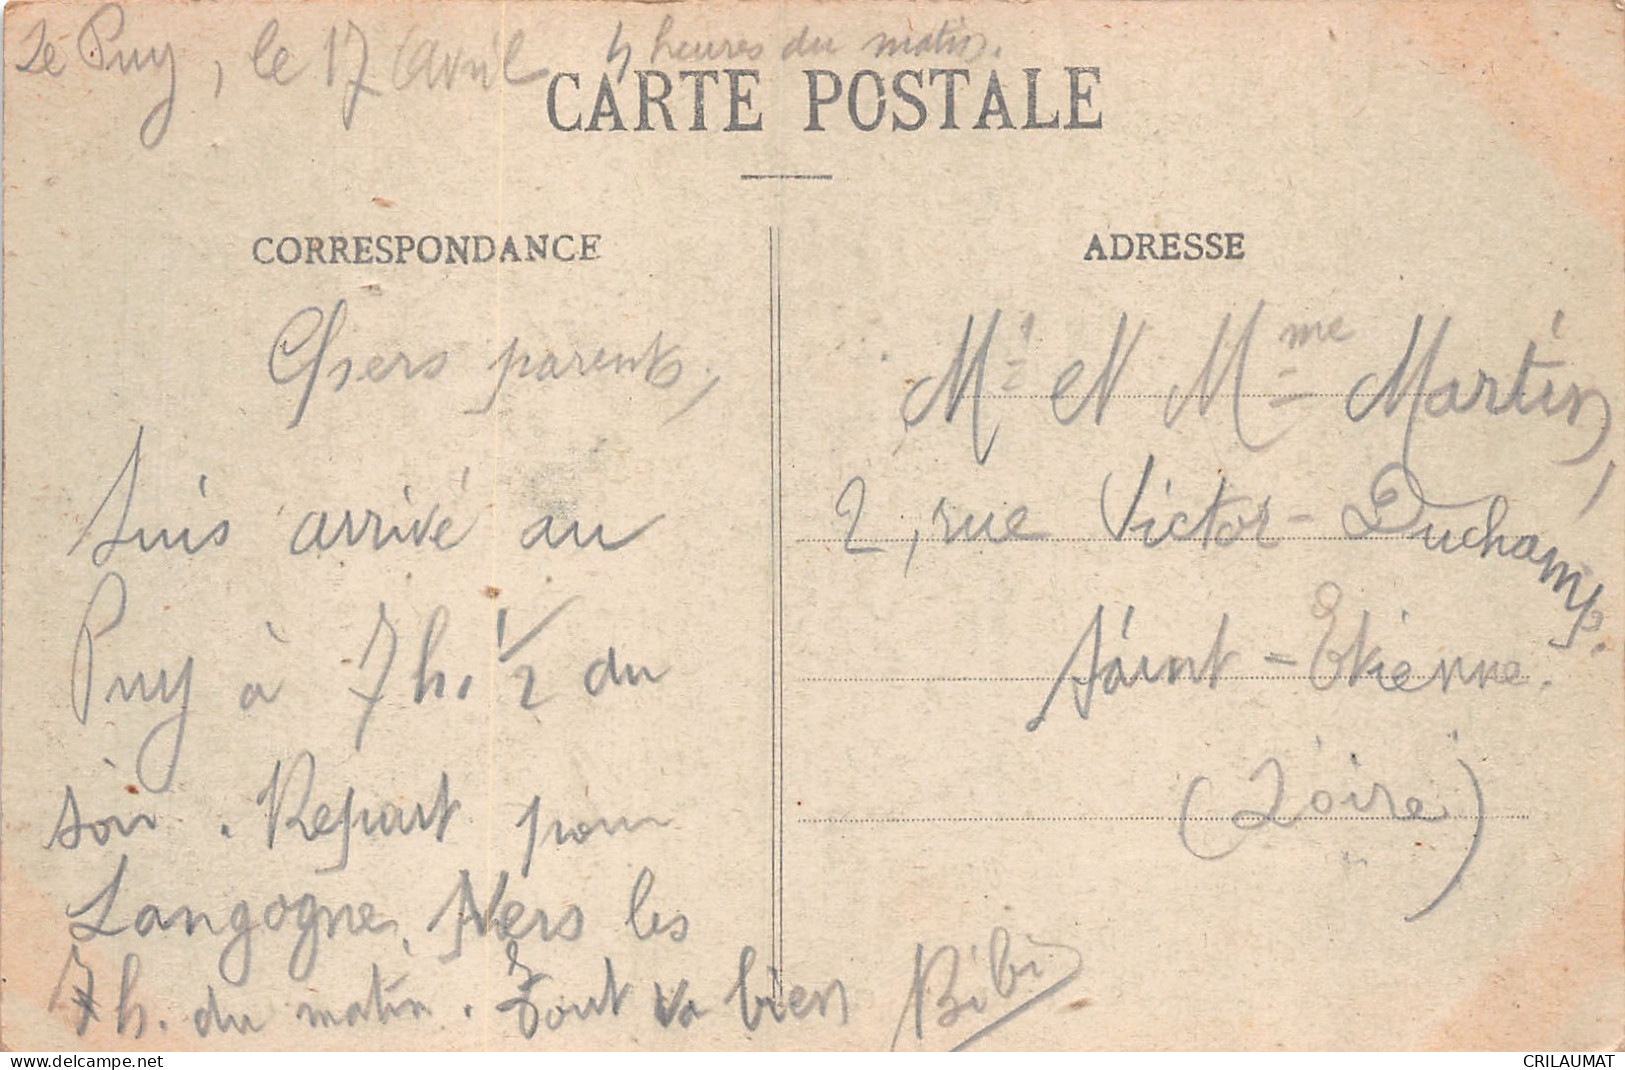 Le Puy, le 17 Avril 4 heures du matin.
CARTE POSTALE
CORRESPONDANCE
Chers parents,
Suis arrivé au
Puy à 7h. 1/2 du
soir. Repart pour
Langogne, Vers les
7h. du matin. Tout va bien
Bibi
ADRESSE
Mr et Mme Martin,
2, rue Victor-Duchamp.
Saint-Etienne.
(Loire)
www.delcampe.net
CRILAUMAT